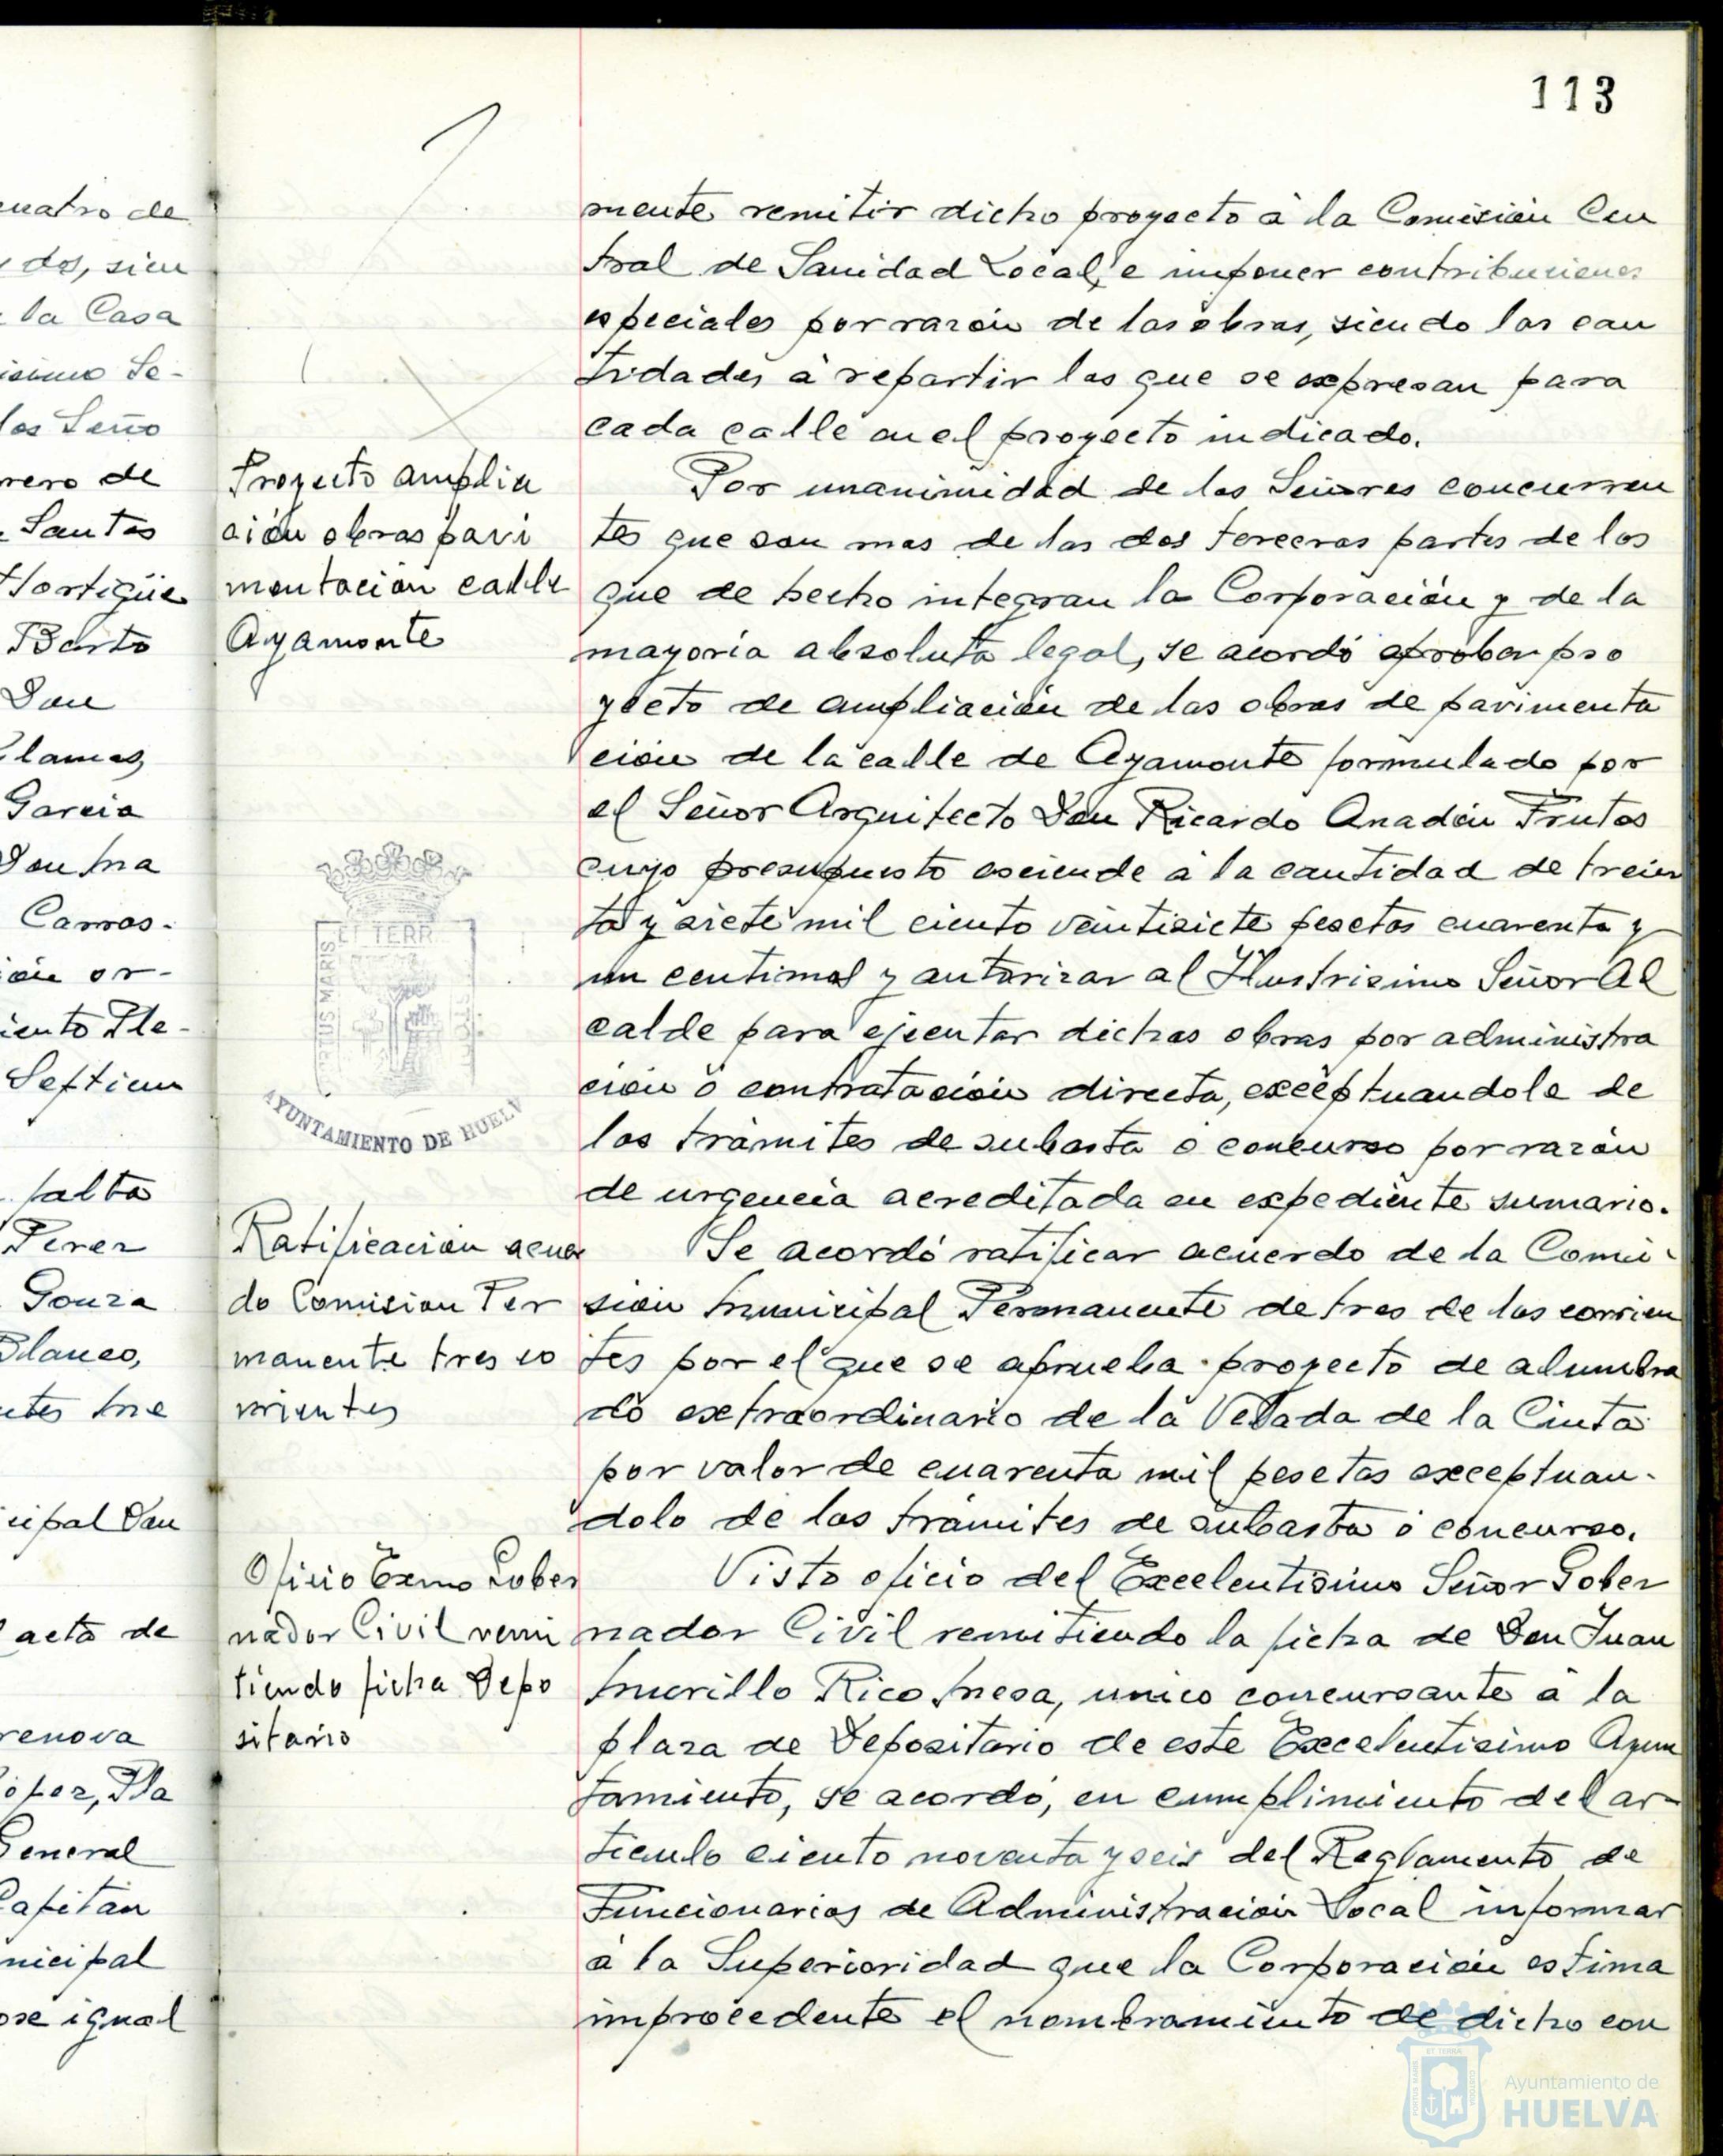 113
mente remitir dicho proyecto à la Comisión Cen
tral de Sanidad Local, e imponer contribuciones
especiales por razón de las obras, siendo las can
tidades à repartir las que se expresan para
cada calle en el proyecto indicado.
Proyecto amplia
ción obras pavi
mentación calle
Ayamonte
Por unanimidad de los Señores concurren
tes que son mas de las dos terceras partes de los
que de hecho integran la Corporación y de la
mayoría absoluta legal, se acordó aprobar pro
yecto de ampliación de las obras de pavimenta
ción de la calle de Ayamonte formulado por
el Señor Arquitecto Don Ricardo Anadón Frutos
cuyo presupuesto asciende à la cantidad de trein
ta y siete mil ciento veintisiete pesetas cuarenta y
un centimos y autorizar al Ilustrisimo Señor Al
calde para ejecutar dichas obras por administra
ción ó contratación directa, exceptuandola de
los trámites de subasta ó concurso por razón
de urgencia acreditada en expediente sumario.
Ratificación acuer
do Comision Per
manente tres co
rrientes
Se acordó ratificar acuerdo de la Comi-
sión Municipal Permanente de tres de los corrien
tes por el que se aprueba proyecto de alumbra
do extraordinario de la Velada de la Cinta
por valor de cuarenta mil pesetas exceptuan-
dolo de los trámites de subasta ó concurso.
Oficio Exmo Gober
nador Civil remi
tiendo ficha Depo
sitario
Visto oficio del Excelentisimo Señor Gober
nador Civil remitiendo la ficha de Don Juan
Murillo Rico Mesa, unico concursante à la
plaza de Depositario de este Excelentisimo Ayun
tamiento, se acordó, en cumplimiento del ar-
ticulo ciento noventa y seis del Reglamento de
Funcionarios de Administración Local informar
à la Superioridad que la Corporación estima
improcedente el nombramiento de dicho con
ET TERR
PORTUS MARIS
AYUNTAMIENTO DE HUELV
cuatro de
dos, sien
la Casa
isimo Se-
los Seño
rero de
Santos
Hortigüe
Barto
Don
Garcia
Don Ma
Carras-
ión or-
iento Ple-
Septiem
falta
Perez
Gonza
Blanco,
ntes Me
cipal Don
acta de
renova
ópez, Pla
General
Capitán
nicipal
ose igual
Ayuntamiento de
HUELVA